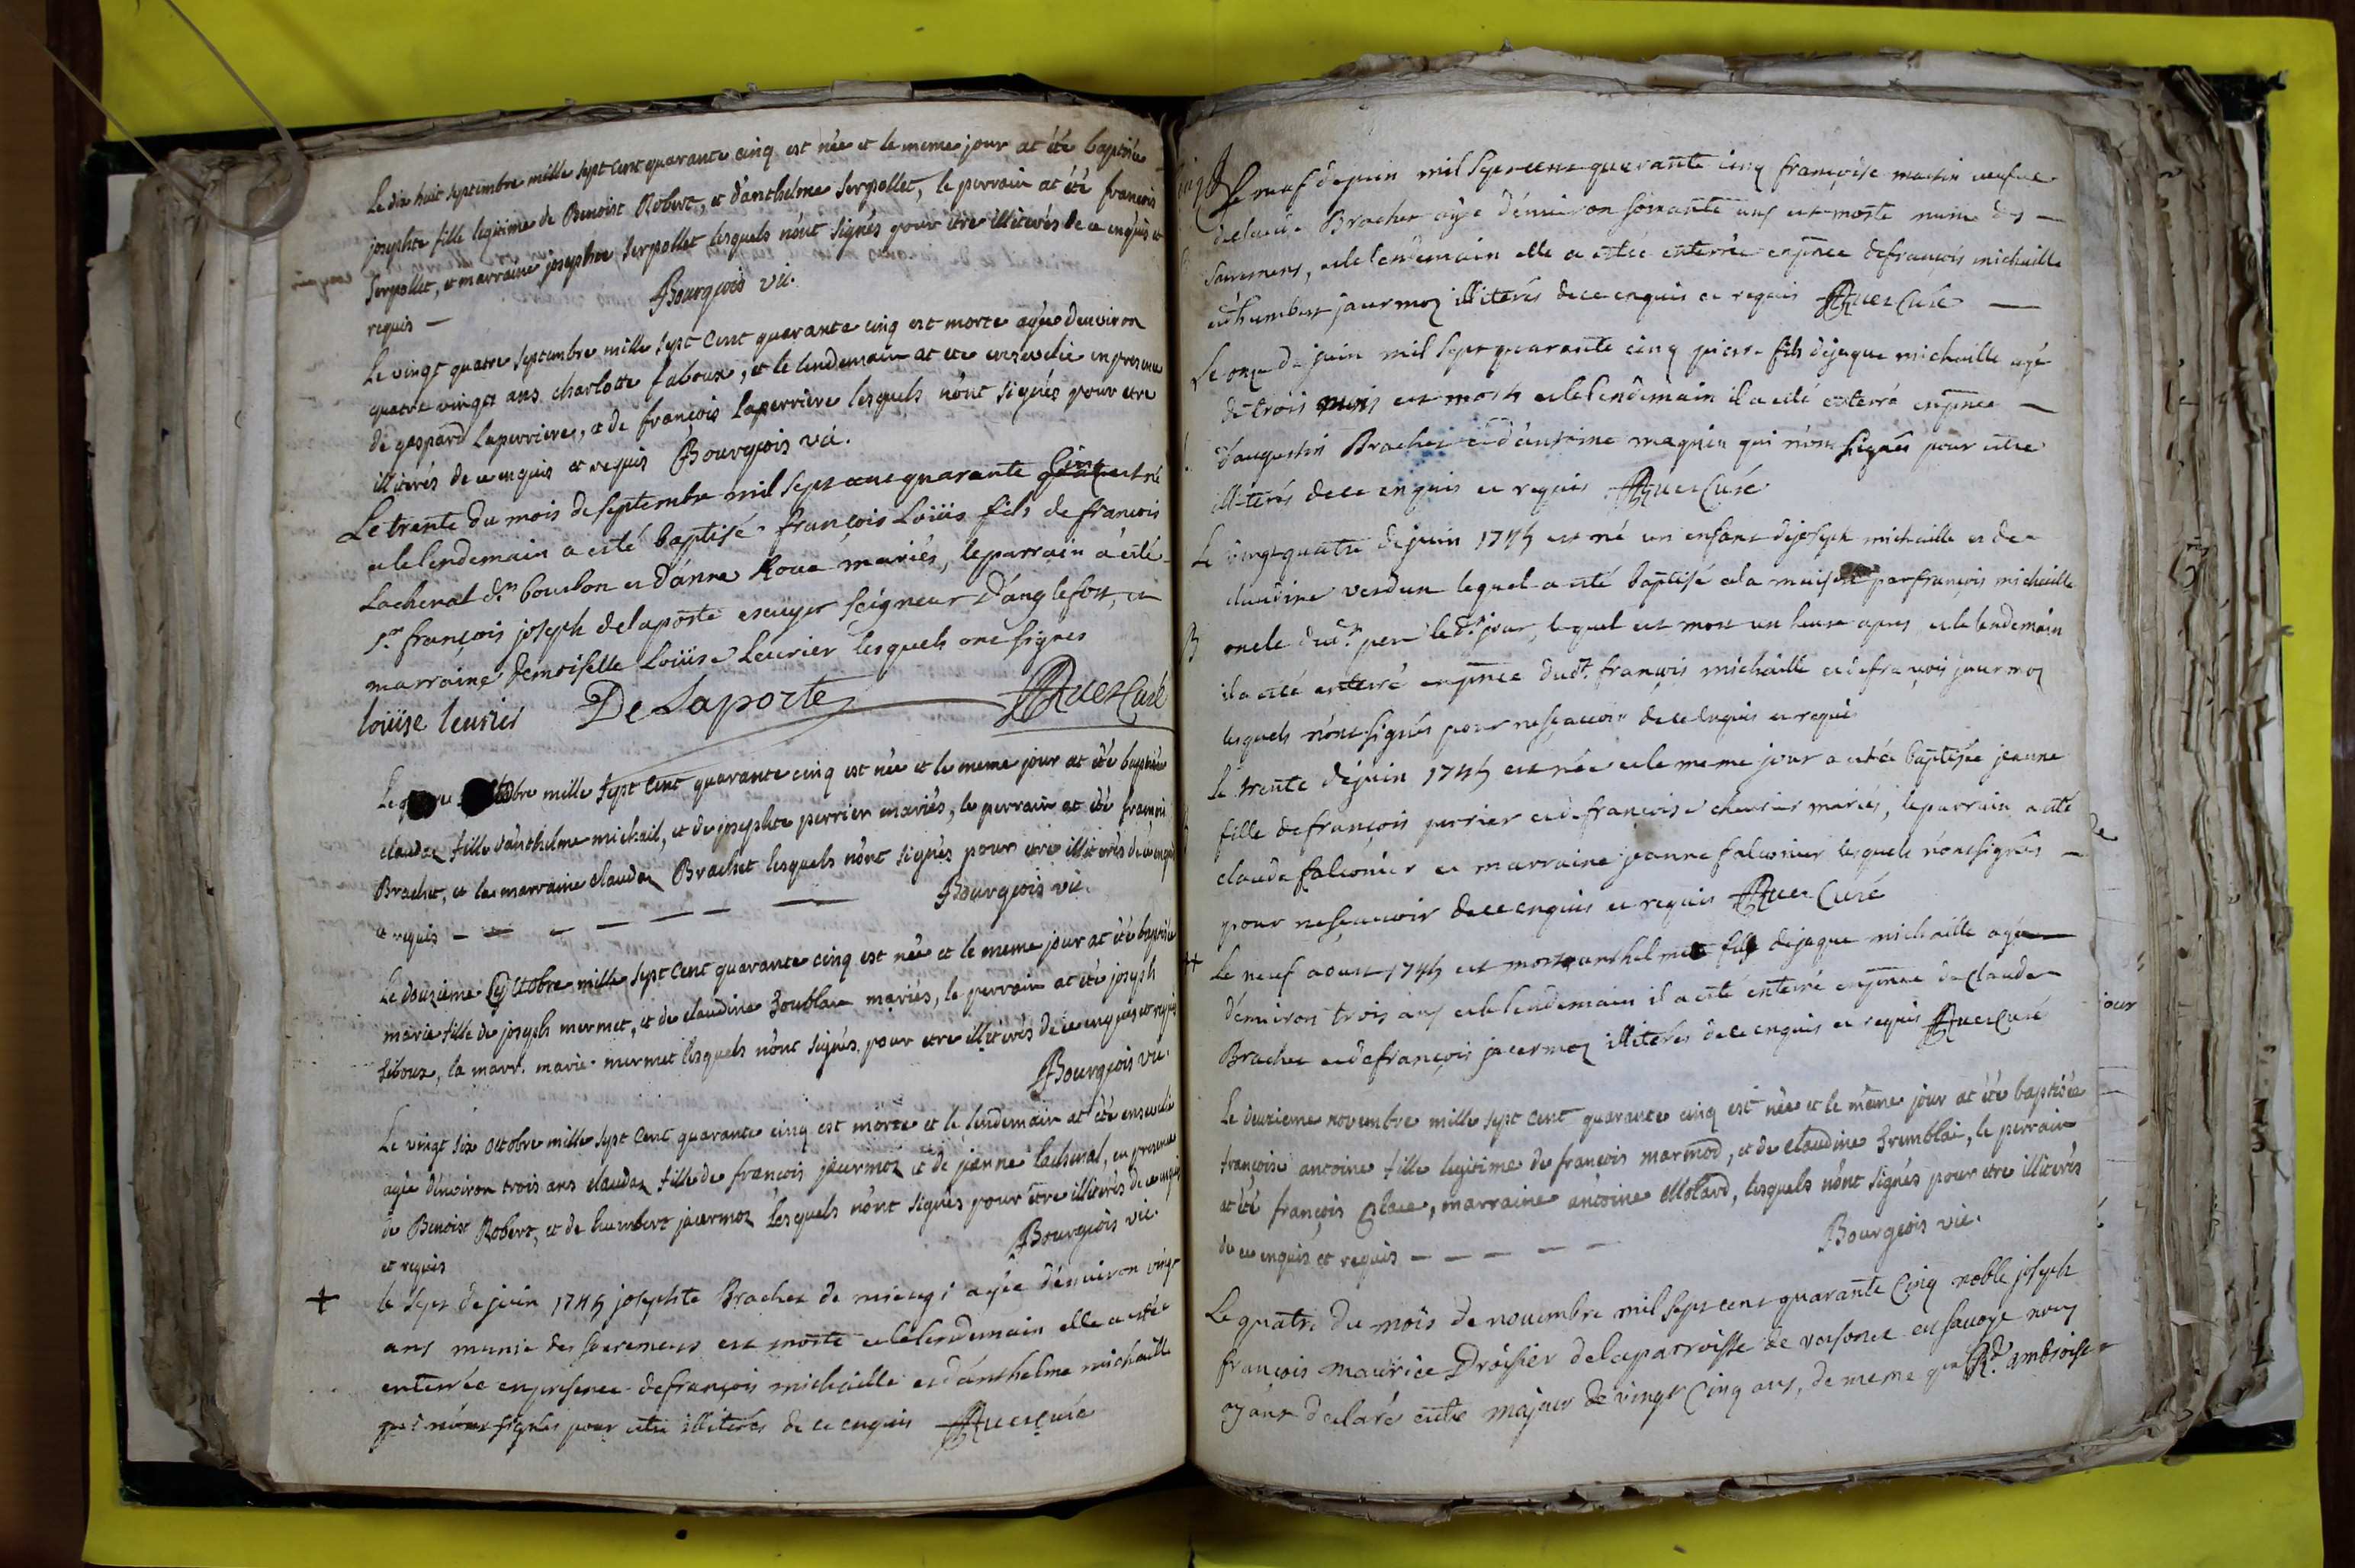 Le dix huit septembre mille sept cent quarante cinq est née et le meme jour at été baptisée
josephte fille legitime de Benoist Robert, et d'anthelme Serpollet, le perrain at été françois
Serpollet, et marraine josephte Serpollet lesquels n'ont signés pour être illiterés de ce enquis et
requis — Bourgeois vic.
Le vingt quatre septembre mille sept cent quarante cinq est morte agée d'environ
quatre vingts ans charlotte faboux, et le lendemain at été ensevelie en presence
de gaspard Laperriere, et de françois laperriere lesquels n'ont signés pour etre
illiterés de ce enquis et requis Bourgeois vic.
Le trente du mois de septembre mil sept cent quarante cinq est né
et le lendemain a esté baptisé françois Loüis fils de françois
Lachenal dit bourbon et d'anne Roux mariés, le parrain a esté
sr. françois joseph delaporte escuyer seigneur D'anglefort, et
marraine demoiselle Loüise Leurier lesquels ont signes
loüise leurier De Laporte Curé
Le octobre mille sept cent quarante cinq est née et le meme jour at été baptisée
claudaz fille d'anthelme michail, et de josephte perrier mariés, le perrain at été françois
Brachet, et la marraine claudaz Brachet lesquels n'ont signés pour etre illiterés de ce enquis
et requis — — — — — — — Bourgeois vic.
Le douzieme octobre mille sept cent quarante cinq est née et le meme jour at été baptisée
marie fille de joseph mermet, et de claudine mariés, le perrain at été joseph
la marr. marie mermet lesquels n'ont signés pour etre illiterés de ce enquis et requis
Bourgeois vic.
Le vingt six octobre mille sept cent quarante cinq est morte et le lendemain at été ensevelie
agée d'environ trois ans claudaz fille de françois jacermoz et de jeanne lachenal, en presence
de Benoist Robert, et de humbert jacermoz lesquels n'ont signés pour être illiterés de ce enquis
et requis Bourgeois vic.
+ le sept de juin 1745 josephte Brachet de agée d'environ vingt
ans munie des sacremens est morte et le lendemain elle a estée
enterrée en presence de françois michaille et d'anthelme michaille
qui n'ont signés pour etre illiterés de ce enquis Curé
Le neuf de juin mil sept cent quarante cinq françoise martin veufve
de claude Brachet agée d'environ soixante ans est morte munie des —
sacremens, et le lendemain elle a estée enterrée en pnce de françois michaille
et humbert jacermoz illiterés de ce enquis et requis Curé —
Le onze de juin mil sept quarante cinq pierre fils de jaque michaille agé
de trois mois est mort et le lendemain il a esté enterré en pnce —
d'augustin Brachet et d'antoine magnin qui n'ont signés pour estre
illiterés de ce enquis et requis Curé
Le vingt quatre de juin 1745 est né un enfant de joseph michaille et de
claudine verdun lequel a esté baptisé a la maison par françois michaille
oncle dud. per led. jour, lequel est mort un heure apres et le lendemain
il a esté enterré en pnce dudt. françois michaille et de françois jacermoz
lesquels n'ont signés pour ne sçavoir de ce enquis et requis
Le trente de juin 1745 est née et le meme jour a estée baptisée jeanne
fille de françois perrier et de françoise chevrier mariés, le parrain a esté
claude falconier et marraine jeanne falconier lesquels n'ont signés —
pour ne sçavoir de ce enquis et requis Curé
++ Le neuf aoust 1745 est mort anthelme fils de jaque michaille agé —
d'environ trois ans et le lendemain il a esté enterré en pnce de claude
Brachet et de françois jacermoz illiterés de ce enquis et requis Curé
Le deuxieme novembre mille sept cent quarante cinq est née et le même jour at été baptisée
françoise antoine fille legitime de françois marmod, et de claudine, le perrain
at été françois, marraine antoine Molard, lesquels n'ont signés pour etre illiterés
de ce enquis et requis — — — — — Bourgeois vic.
Le quatre du mois de novembre mil sept cent quarante Cinq noble joseph
françois maurice Droisier de la parroisse de versonex en savoye nous
ayant declaré estre majeur de vingt Cinq ans, de meme que Rd. ambroise